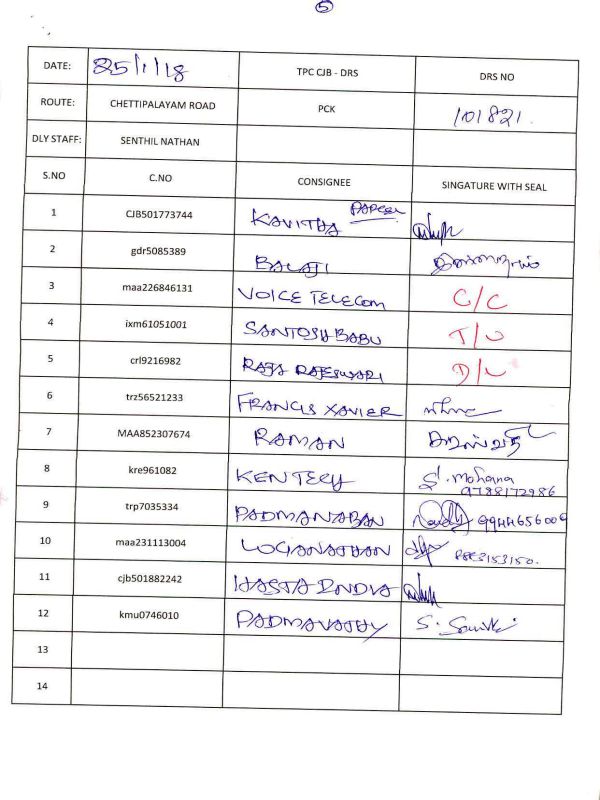 5
DATE: 25/1/18 TPC CJB - DRS DRS NO
ROUTE: CHETTIPALAYAM ROAD PCK 101821.
DLY STAFF: SENTHIL NATHAN
S.NO C.NO CONSIGNEE SINGATURE WITH SEAL
1 CJB501773744 KAVITHA PAPER
2 gdr5085389 BALAJI
3 maa226846131 VOICE TELECOM C/C
4 ixm61051001 SANTOSH BABU
5 crl9216982 RAJA RAJESWARI D/L
6 trz56521233 FRANCIS XAVIER
7 MAA852307674 RAMAN
8 kre961082 KEN TECH S. Mohana
9788172986
9 trp7035334 PADMANABAN 9944656006
10 maa231113004 LOGANATHAN
11 cjb501882242 HASTA INDIA
12 kmu0746010 PADMAVATHY S.
13
14